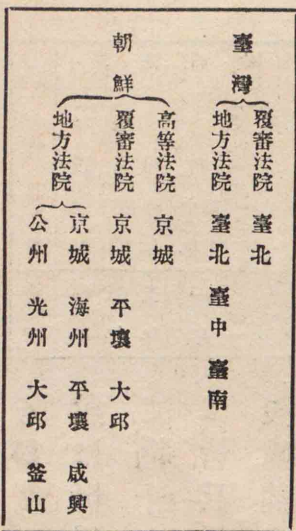 臺灣
覆審法院 臺北
地方法院 臺北 臺中 臺南
朝鮮
高等法院 京城
覆審法院 京城 平壤 大邱
地方法院
京城 海州 平壤 咸興
公州 光州 大邱 釜山